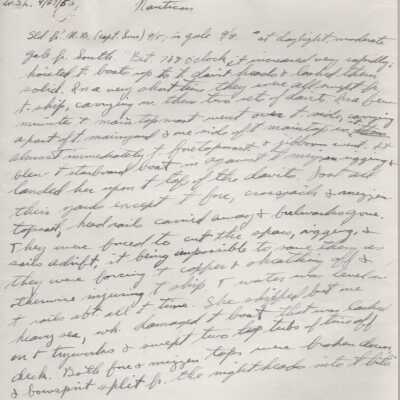 W.S.L. 4/27/53
Nauticon
Sld fr. N.B. (Capt. Luce) 9/5, in gale 9/8 "at daylight, moderate
gale fr. South. Bet 7 & 8 o'clock, it increased very rapidly;
hoisted t boats up to t davit heads & lashed them
solid. In a very short time they were all right fr
t ship, carrying in them two set of davits. In a few
minutes t main topmast went over t side, carrying
a part of t mainyard & one side of t maintop in
almost immediately t foretopmast & jibboom went. It
blew t starboard boat in against t mizzen rigging &
landed her upon t top of the davits. Lost all
their yards except t fore, crossjack & mizzen
topsail, head rails carried away & bulwarks gone.
They were forced to cut the spars, rigging, &
sails adrift, it being impossible to save them as
they were forcing t copper & sheathing off &
otherwise injuring t ship & water was level w
t rails abt all t time. She shipped but one
heavy sea, wh. damaged t boat that was lashed
on t tryworks & swept two top tubs of tow off
deck. Both fore & mizzen tops were broken down
& bowsprit split fr. the nightheads into t bitts